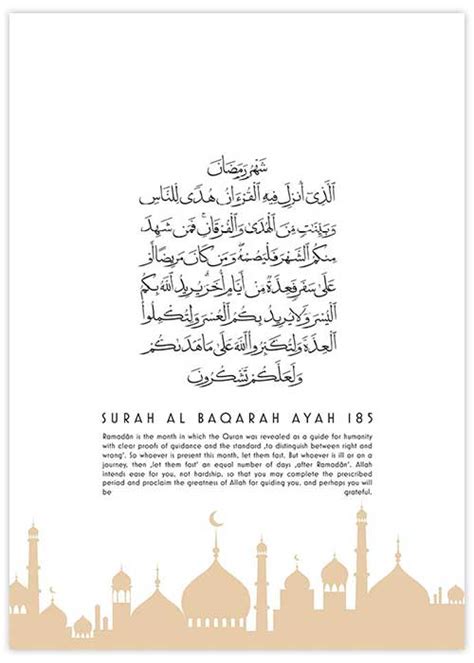 شَهْرُ رَمَضَانَ
ٱلَّذِىٓ أُنزِلَ فِيهِ ٱلْقُرْءَانُ هُدًى لِّلنَّاسِ
وَبَيِّنَٰتٍ مِّنَ ٱلْهُدَىٰ وَٱلْفُرْقَانِ ۚ فَمَن شَهِدَ
مِنكُمُ ٱلشَّهْرَ فَلْيَصُمْهُ ۖ وَمَن كَانَ مَرِيضًا أَوْ
عَلَىٰ سَفَرٍ فَعِدَّةٌ مِّنْ أَيَّامٍ أُخَرَ ۗ يُرِيدُ ٱللَّهُ بِكُمُ
ٱلْيُسْرَ وَلَا يُرِيدُ بِكُمُ ٱلْعُسْرَ وَلِتُكْمِلُوا۟
ٱلْعِدَّةَ وَلِتُكَبِّرُوا۟ ٱللَّهَ عَلَىٰ مَا هَدَىٰكُمْ
وَلَعَلَّكُمْ تَشْكُرُونَ
SURAH AL BAQARAH AYAH 185
Ramadān is the month in which the Quran was revealed as a guide for humanity
with clear proofs of guidance and the standard ‚to distinguish between right and
wrong'. So whoever is present this month, let them fast. But whoever is ill or on a
journey, then ‚let them fast' an equal number of days ‚after Ramadān'. Allah
intends ease for you, not hardship, so that you may complete the prescribed
period and proclaim the greatness of Allah for guiding you, and perhaps you will
be grateful.